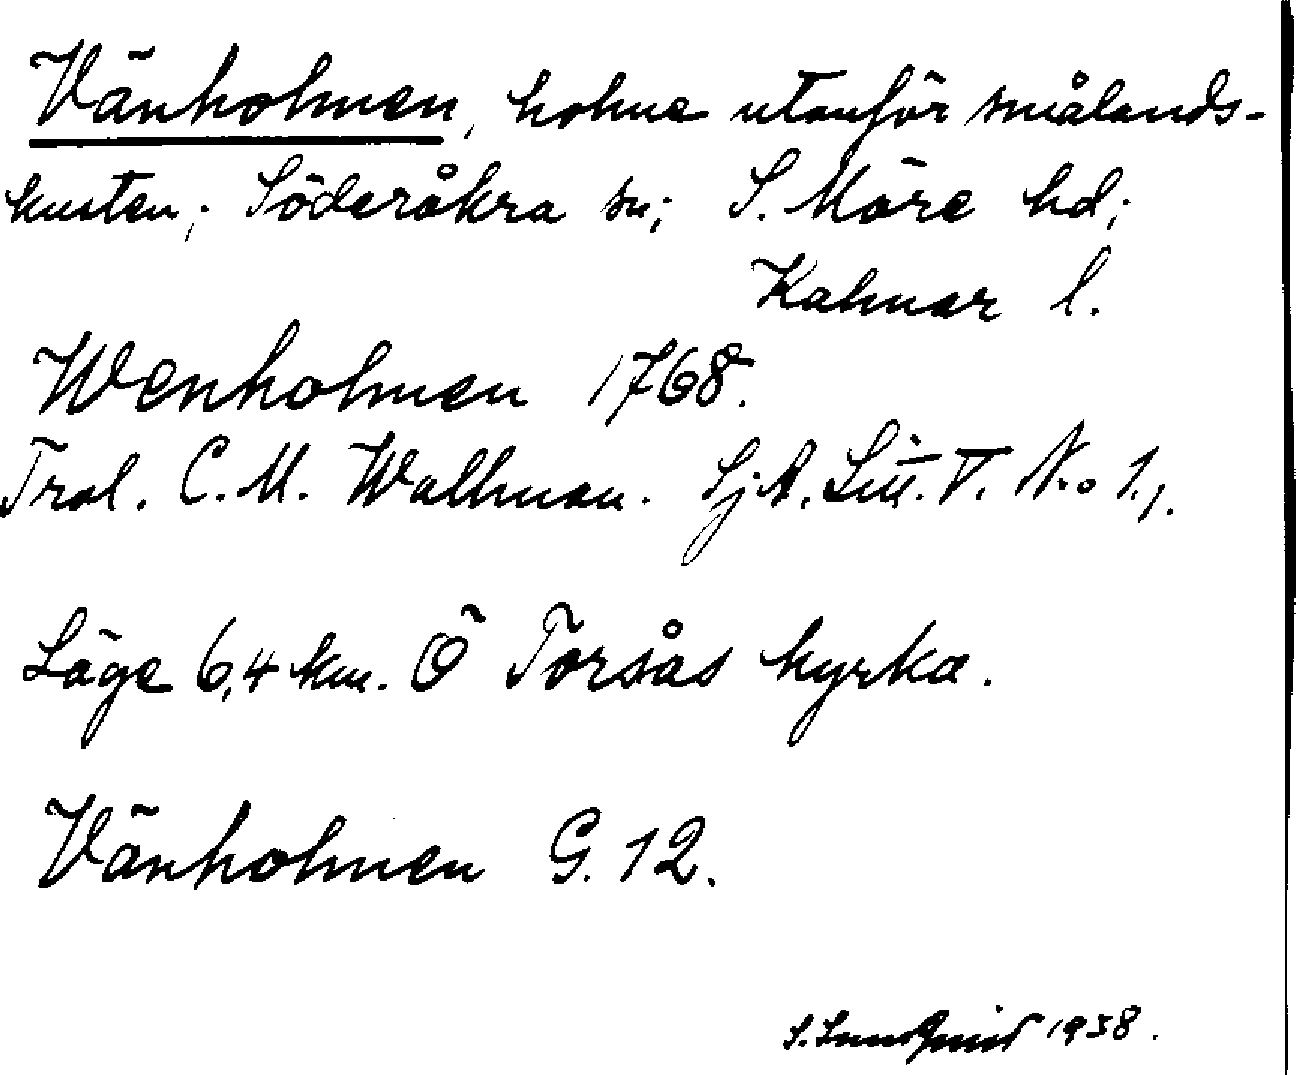 Vänholmen, holme utanför smålands-
kusten; Söderåkra sn; S. Möre hd;
Kalmar l.
Wenholmen 1768.
Trol. C. M. Wallman. Sj. A. Litt. V. No 1.
Läge 6,4 km. Ö Torsås kyrka.
Vänholmen G. 12.
S. Lundquist 1938.